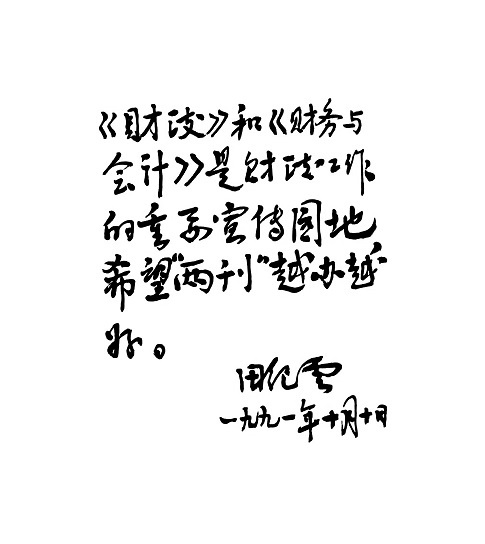 《财政》和《财务与
会计》是财政工作
的重要宣传园地
希望“两刊”越办越
好。
田纪云
一九九一年十月十日